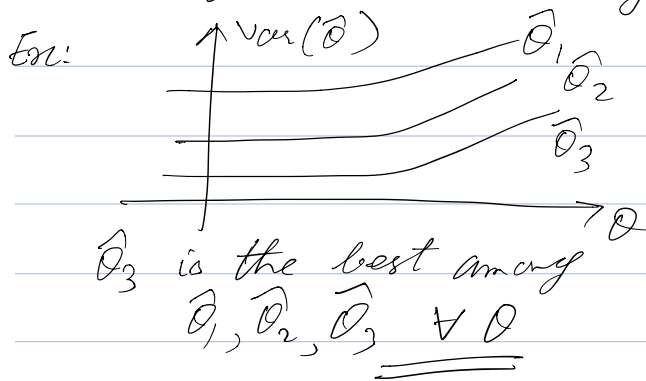 Ex:
Var(θ̂)
θ̂₁
θ̂₂
θ̂₃
θ
θ̂₃ is the best among
θ̂₁, θ̂₂, θ̂₃ ∀ θ